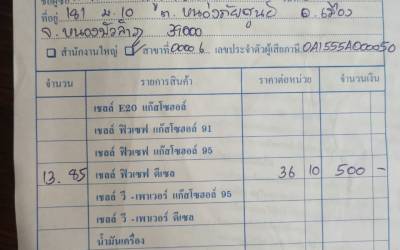 ที่อยู่ 181 ม.10 ต. หนองภัยศูนย์ อ. เมือง
จ. หนองบัวลำภู 39000
สำนักงานใหญ่ สาขาที่ 0000 6 เลขประจำตัวผู้เสียภาษี 0A1555A000050
จำนวน รายการสินค้า ราคาต่อหน่วย จำนวนเงิน
เชลล์ E20 แก๊สโซฮอล์
เชลล์ ฟิวเซฟ แก๊สโซฮอล์ 91
เชลล์ ฟิวเซฟ แก๊สโซฮอล์ 95
13. 85 เชลล์ ฟิวเซฟ ดีเซล 36 10 500 -
เชลล์ วี -เพาเวอร์ แก๊สโซฮอล์ 95
เชลล์ วี -เพาเวอร์ ดีเซล
น้ำมันเครื่อง